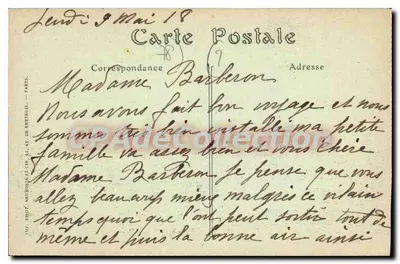 Jeudi 9 Mai 18
Carte Postale
Correspondance
Adresse
Madame Barberon
Nous avons fait bon voyage et nous
sommes très bien installé ma petite
famille va assez bien et vous chère
Madame Barberon je pense que vous
allez beaucoup mieux malgrés ce vilain
temps quoi que l'ont peut sortir tout de
même et puis la bonne air ainsi